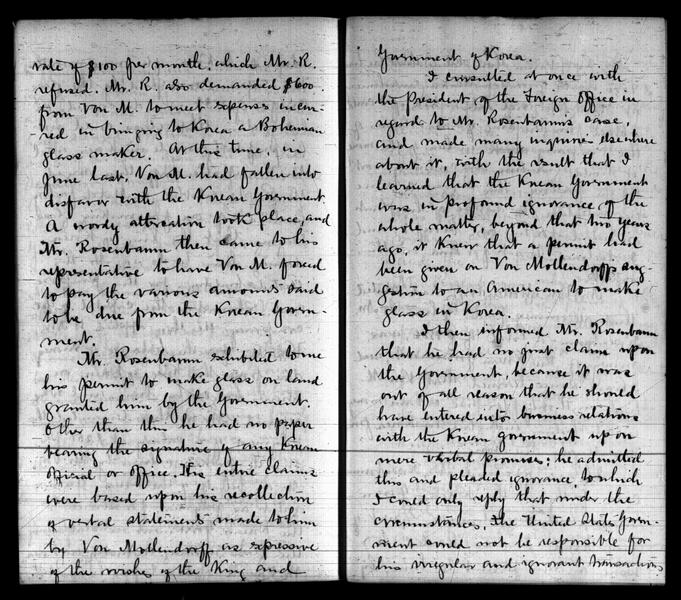 rate of $100 per month, which Mr. R.
refused. Mr. R. also demanded $600.
from Von M. to meet expenses incur-
red in bringing to Korea a Bohemian
glass maker. At this time, in
June last, Von M. had fallen into
disfavor with the Korean Government.
A wordy altercation took place, and
Mr. Rosenbaum then came to his
representative to have Von M. forced
to pay the various amounts said
to be due from the Korean Govern-
ment.
Mr. Rosenbaum exhibited to me
his permit to make glass on land
granted him by the Government.
Other than this he had no paper
bearing the signature of any Korean
official or office. His entire claims
were based upon his recollection
of verbal statements made to him
by Von Mollendorff as expressive
of the wishes of the King and
Government of Korea.
I consulted at once with
the President of the Foreign Office in
regard to Mr. Rosenbaum's case,
and made many inquiries elsewhere
about it, with the result that I
learned that the Korean Government
was in profound ignorance of the
whole matter, beyond that two years
ago, it knew that a permit had
been given on Von Mollendorff's sug-
gestion to an American to make
glass in Korea.
I then informed Mr. Rosenbaum
that he had no just claim upon
the Government, because it was
out of all reason that he should
have entered into business relations
with the Korean government upon
mere verbal promises; he admitted
this and pleaded ignorance, to which
I could only reply that under the
circumstances, the United States Govern-
ment could not be responsible for
his irregular and ignorant transactions